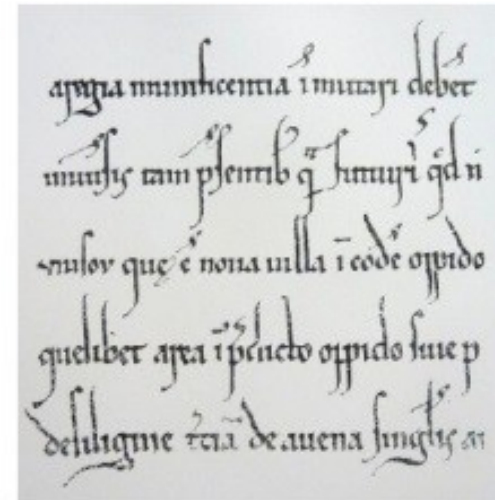 a regia munificentia īmutari debet
uniūsis tam p̄sentib; q̄ futuris qd n
quę ē noua uilla ī eodē oppido
quelibet area ī p̄dicto oppido siue p
de siligine t̄cia de auena singlis